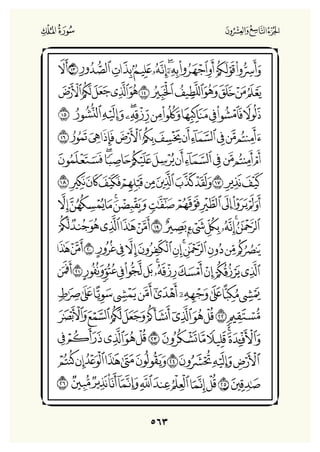 سُورَةُ المُلْكِ
الجُزْءُ التَّاسِعُ وَالعِشْرُونَ
وَأَسِرُّوا۟ قَوْلَكُمْ أَوِ ٱجْهَرُوا۟ بِهِۦٓ إِنَّهُۥ عَلِيمٌۢ بِذَاتِ ٱلصُّدُورِ ١٣ أَلَا
يَعْلَمُ مَنْ خَلَقَ وَهُوَ ٱللَّطِيفُ ٱلْخَبِيرُ ١٤ هُوَ ٱلَّذِى جَعَلَ لَكُمُ ٱلْأَرْضَ
ذَلُولًا فَٱمْشُوا۟ فِى مَنَاكِبِهَا وَكُلُوا۟ مِن رِّزْقِهِۦ ۖ وَإِلَيْهِ ٱلنُّشُورُ ١٥
ءَأَمِنتُم مَّن فِى ٱلسَّمَآءِ أَن يَخْسِفَ بِكُمُ ٱلْأَرْضَ فَإِذَا هِىَ تَمُورُ ١٦
أَمْ أَمِنتُم مَّن فِى ٱلسَّمَآءِ أَن يُرْسِلَ عَلَيْكُمْ حَاصِبًا ۖ فَسَتَعْلَمُونَ
كَيْفَ نَذِيرِ ١٧ وَلَقَدْ كَذَّبَ ٱلَّذِينَ مِن قَبْلِهِمْ فَكَيْفَ كَانَ نَكِيرِ ١٨
أَوَلَمْ يَرَوْا۟ إِلَى ٱلطَّيْرِ فَوْقَهُمْ صَـٰٓفَّـٰتٍ وَيَقْبِضْنَ ۚ مَا يُمْسِكُهُنَّ إِلَّا
ٱلرَّحْمَـٰنُ ۚ إِنَّهُۥ بِكُلِّ شَىْءٍۭ بَصِيرٌ ١٩ أَمَّنْ هَـٰذَا ٱلَّذِى هُوَ جُندٌ لَّكُمْ
يَنصُرُكُم مِّن دُونِ ٱلرَّحْمَـٰنِ ۚ إِنِ ٱلْكَـٰفِرُونَ إِلَّا فِى غُرُورٍ ٢٠ أَمَّنْ هَـٰذَا
ٱلَّذِى يَرْزُقُكُمْ إِنْ أَمْسَكَ رِزْقَهُۥ ۚ بَل لَّجُّوا۟ فِى عُتُوٍّ وَنُفُورٍ ٢١ أَفَمَن
يَمْشِى مُكِبًّا عَلَىٰ وَجْهِهِۦٓ أَهْدَىٰٓ أَمَّن يَمْشِى سَوِيًّا عَلَىٰ صِرَٰطٍ
مُّسْتَقِيمٍ ٢٢ قُلْ هُوَ ٱلَّذِىٓ أَنشَأَكُمْ وَجَعَلَ لَكُمُ ٱلسَّمْعَ وَٱلْأَبْصَـٰرَ
وَٱلْأَفْـِٔدَةَ ۖ قَلِيلًا مَّا تَشْكُرُونَ ٢٣ قُلْ هُوَ ٱلَّذِى ذَرَأَكُمْ فِى
ٱلْأَرْضِ وَإِلَيْهِ تُحْشَرُونَ ٢٤ وَيَقُولُونَ مَتَىٰ هَـٰذَا ٱلْوَعْدُ إِن كُنتُمْ
صَـٰدِقِينَ ٢٥ قُلْ إِنَّمَا ٱلْعِلْمُ عِندَ ٱللَّهِ وَإِنَّمَآ أَنَا۠ نَذِيرٌ مُّبِينٌ ٢٦
٥٦٣